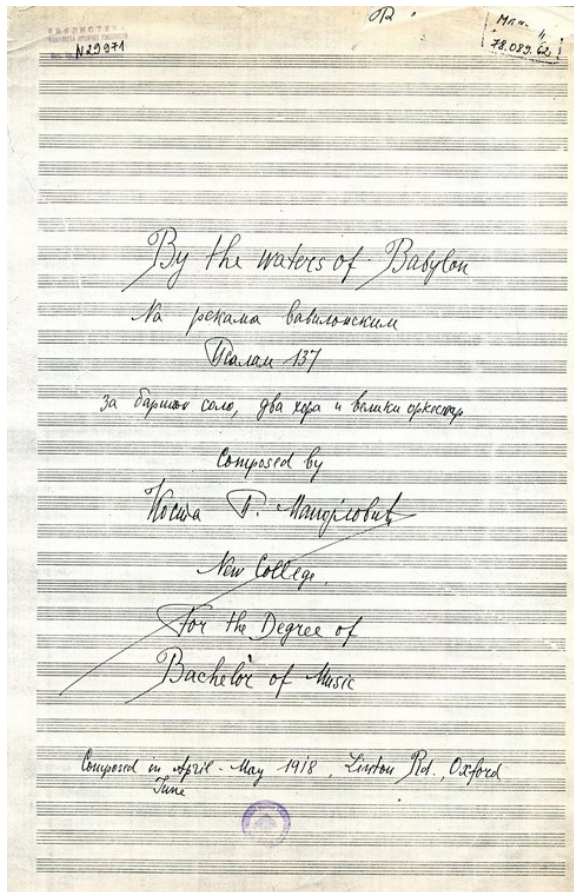 БИБЛИОТЕКА
N29971
78.089.62
By the waters of Babylon
На рекама вавилонским
Псалам 137
за баритон соло, два хора и велики оркестар
Composed by
Коста П. Манојловић
New College,
For the Degree of
Bachelor of Music
Composed in April - May 1918, Linton Rd., Oxford
June